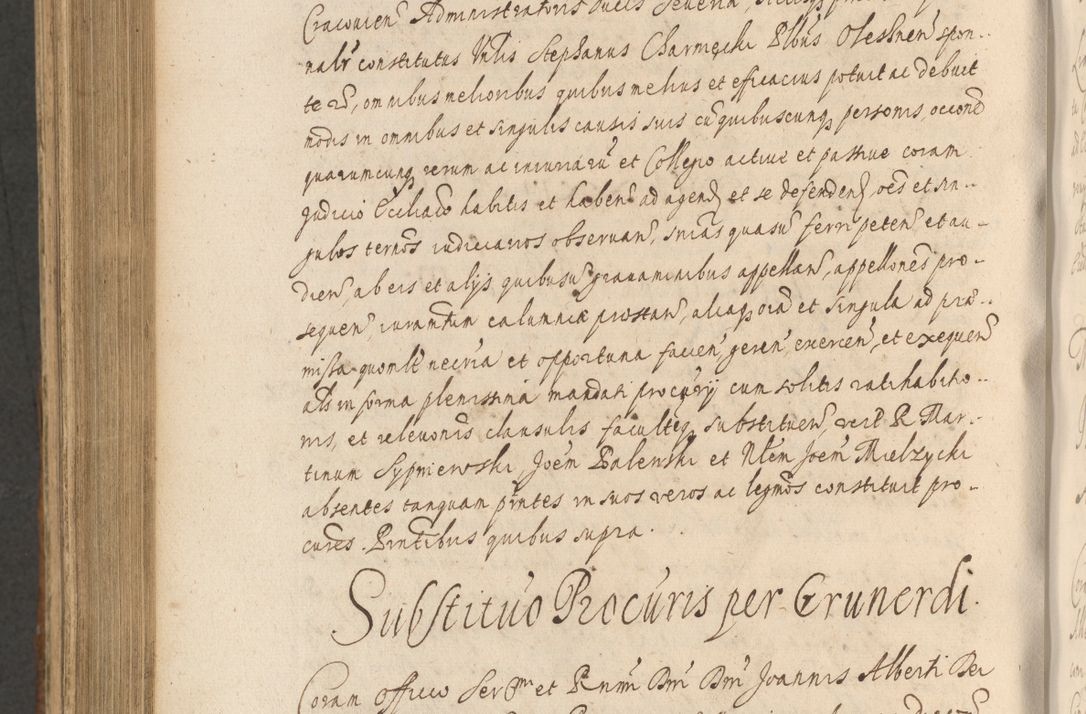 Cracovien̄ Administratoris Ducis Severiæ,
nalr̄ constitutus Vnlis Stephanus Charmęcki Plb̄us Olesznen̄ spon-
te etc̄, omnibus melioribus quibus melius et efficacius potuit ac debuit
modis in omnibus et singulis causis suis cū quibuscunq̨ personis, occōne
quarumcunq̨ rerum ac iniuriarū et Collegio active et passive coram
judicio Ecc̄liaco habitis et haben̄ ad agend̨ et se defenden̄d, oēs et sin-
gulos termōs iudiciarios observan̄, sn̄ias quasvī ferri peten̄ et au-
dien̄, ab eis et alijs quibusvī gravaminibus appellan̄, appellōnes pro-
sequen̄, iuramtum calumniæ præstan̄, aliaq̨ oīa et singula ad præ-
missa quomlt̄ necrīa et opportuna facien̄, geren̄, exercen̄, et exequen̄
als in forma plenissimā mandati procurīj cum solitis ratihabitio-
nis, et relevōnis clausulis facultēq̨ substituen̄, verit R Mar-
tinum Sypniewski, Joēm Palenski et Nlēm Joēm Mielzycki
absentes tanquam pn̄tes in suos veros ac legmōs constituit pro-
cures. Pn̄ntibus quibus supra.
Substituō Procuris per Grunerdi.
Coram Officio Ser P̄m et R̄nm̄i Dn̄i Dn̄i Joannis Alberti Dei